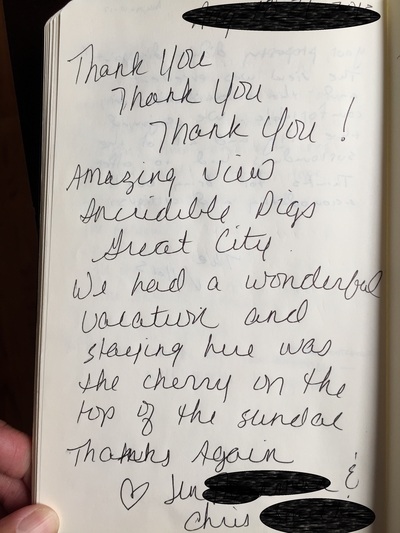 Thank You
Thank You
Thank You!
Amazing View
Incredible Digs
Great City.
We had a wonderful
vacation and
staying here was
the cherry on the
top of the sundae
Thanks Again
♡ &
Chris